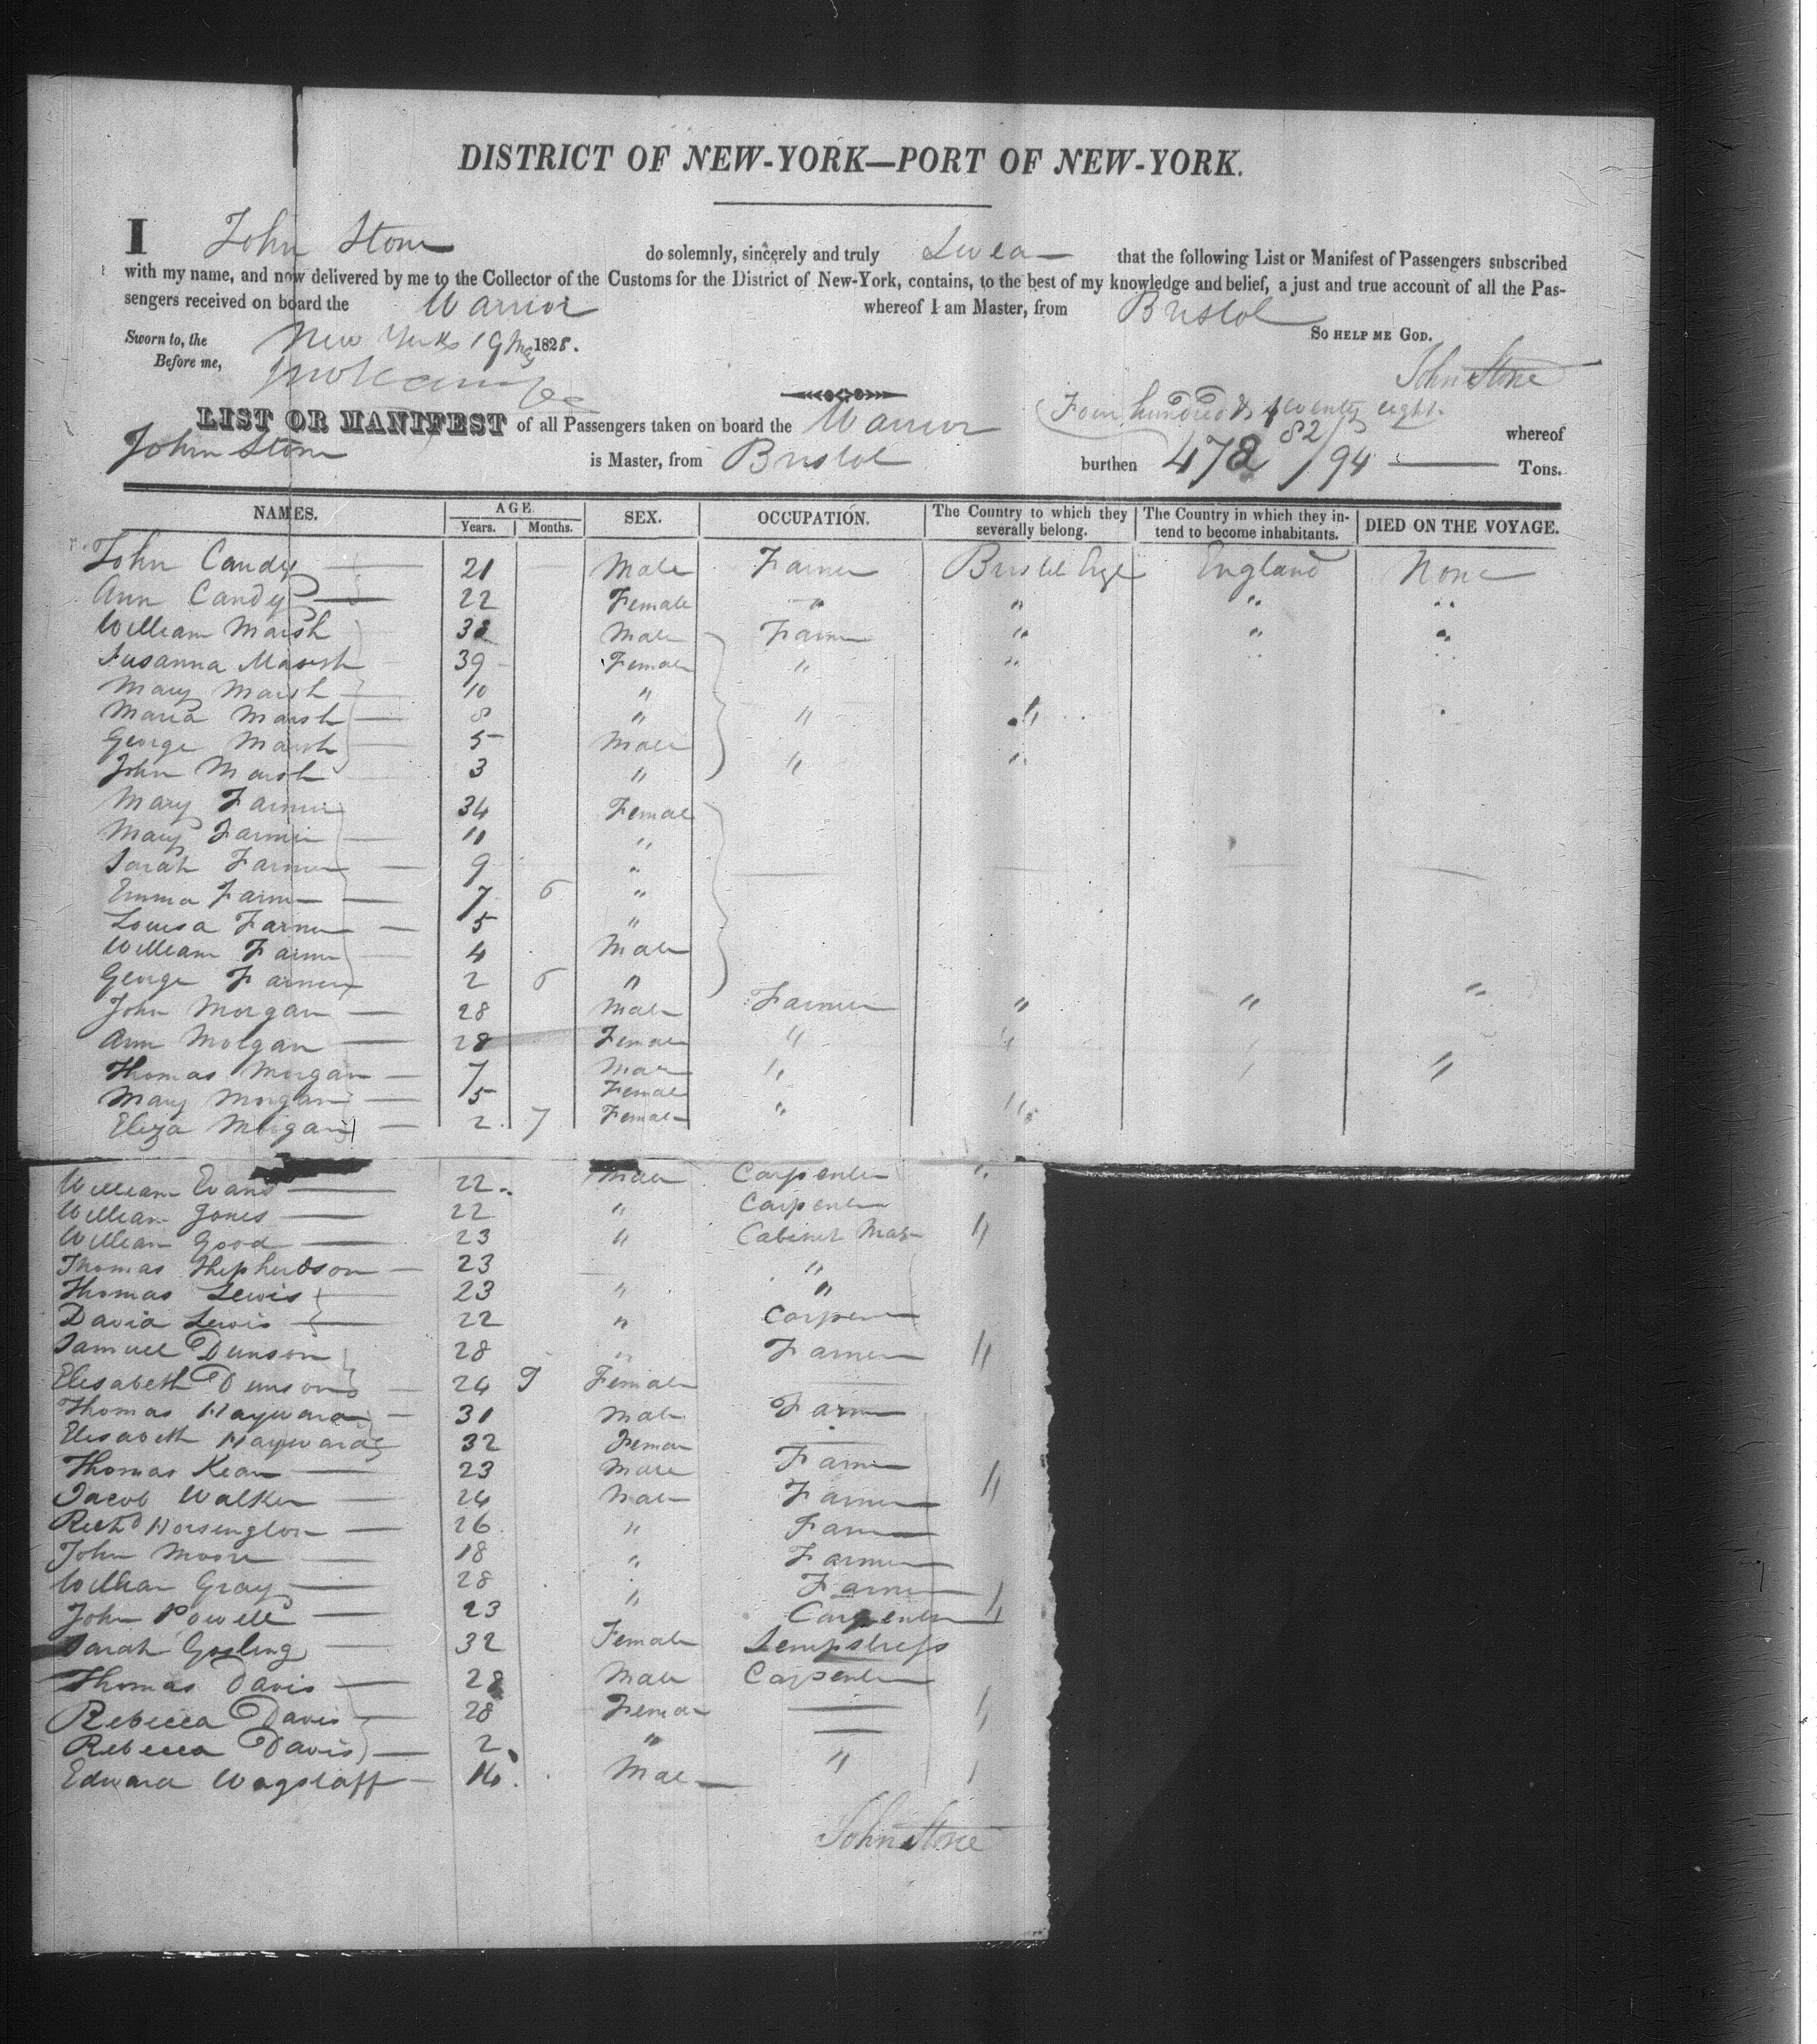 DISTRICT OF NEW-YORK—PORT OF NEW-YORK.
I John Stone do solemnly, sincerely and truly Swear that the following List or Manifest of Passengers subscribed
with my name, and now delivered by me to the Collector of the Customs for the District of New-York, contains, to the best of my knowledge and belief, a just and true account of all the Pas-
sengers received on board the Warrior whereof I am Master, from Bristol
Sworn to, the New York 19 May 1828. So HELP ME GOD.
Before me, John Stone
LIST OR MANIFEST of all Passengers taken on board the Warrior Four hundred & seventy eight 82/ whereof
John Stone is Master, from Bristol burthen 478 /94 Tons.
NAMES. AGE Years. Months. SEX. OCCUPATION. The Country to which they severally belong. The Country in which they intend to become inhabitants. DIED ON THE VOYAGE.
John Candy 21 Male Farmer Bristol Engl England None
Ann Candy 22 Female " " " "
William Marsh 38 Male Farmer " " "
Susanna Marsh 39 Female " " " "
Mary Marsh 10 "
Maria Marsh 8 " " "
George Marsh 5 Male
John Marsh 3 " " "
Mary Farmer 34 Female
Mary Farmer 11 "
Sarah Farmer 9 "
Emma Farmer 7 6 "
Louisa Farmer 5 "
William Farmer 4 Male
George Farmer 2 6 "
John Morgan 28 Male Farmer " " "
Ann Morgan 28 Female " "
Thomas Morgan 7 Male " "
Mary Morgan 5 Female
Eliza Morgan 2 7 Female " "
William Evans 22 Male Carpenter "
William Jones 22 " Carpenter
William Good 23 " Cabinet Mak "
Thomas Shepherdson 23 "
Thomas Lewis 23 " "
David Lewis 22 " Carpen
Samuel Dunson 28 " Farmer "
Elisabeth Dunson 24 9 Female
Thomas Hayward 31 Male Farmer
Elisabeth Hayward 32 Female
Thomas Kean 23 Male Farmer "
Jacob Walker 24 Male Farmer
Richd Horsington 26 " Farmer
John Moore 18 " Farmer
William Gray 28 " Farmer
John Powell 23 " Carpenter "
Sarah Gosling 32 Female Sempstress
Thomas Davis 28 Male Carpenter
Rebecca Davis 28 Female "
Rebecca Davis 2 "
Edward Wagstaff 16 Male " "
John Stone